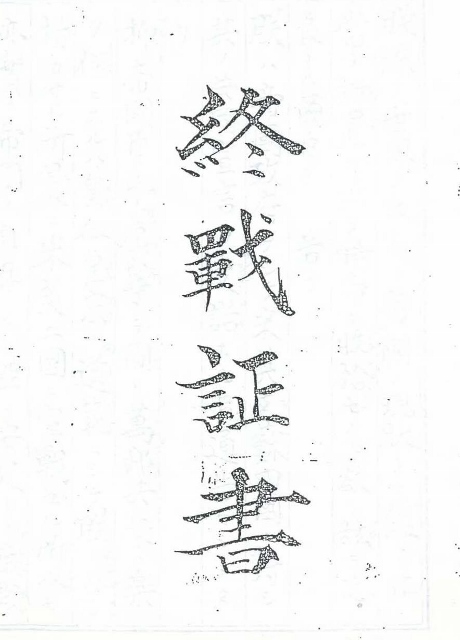 終戰証書